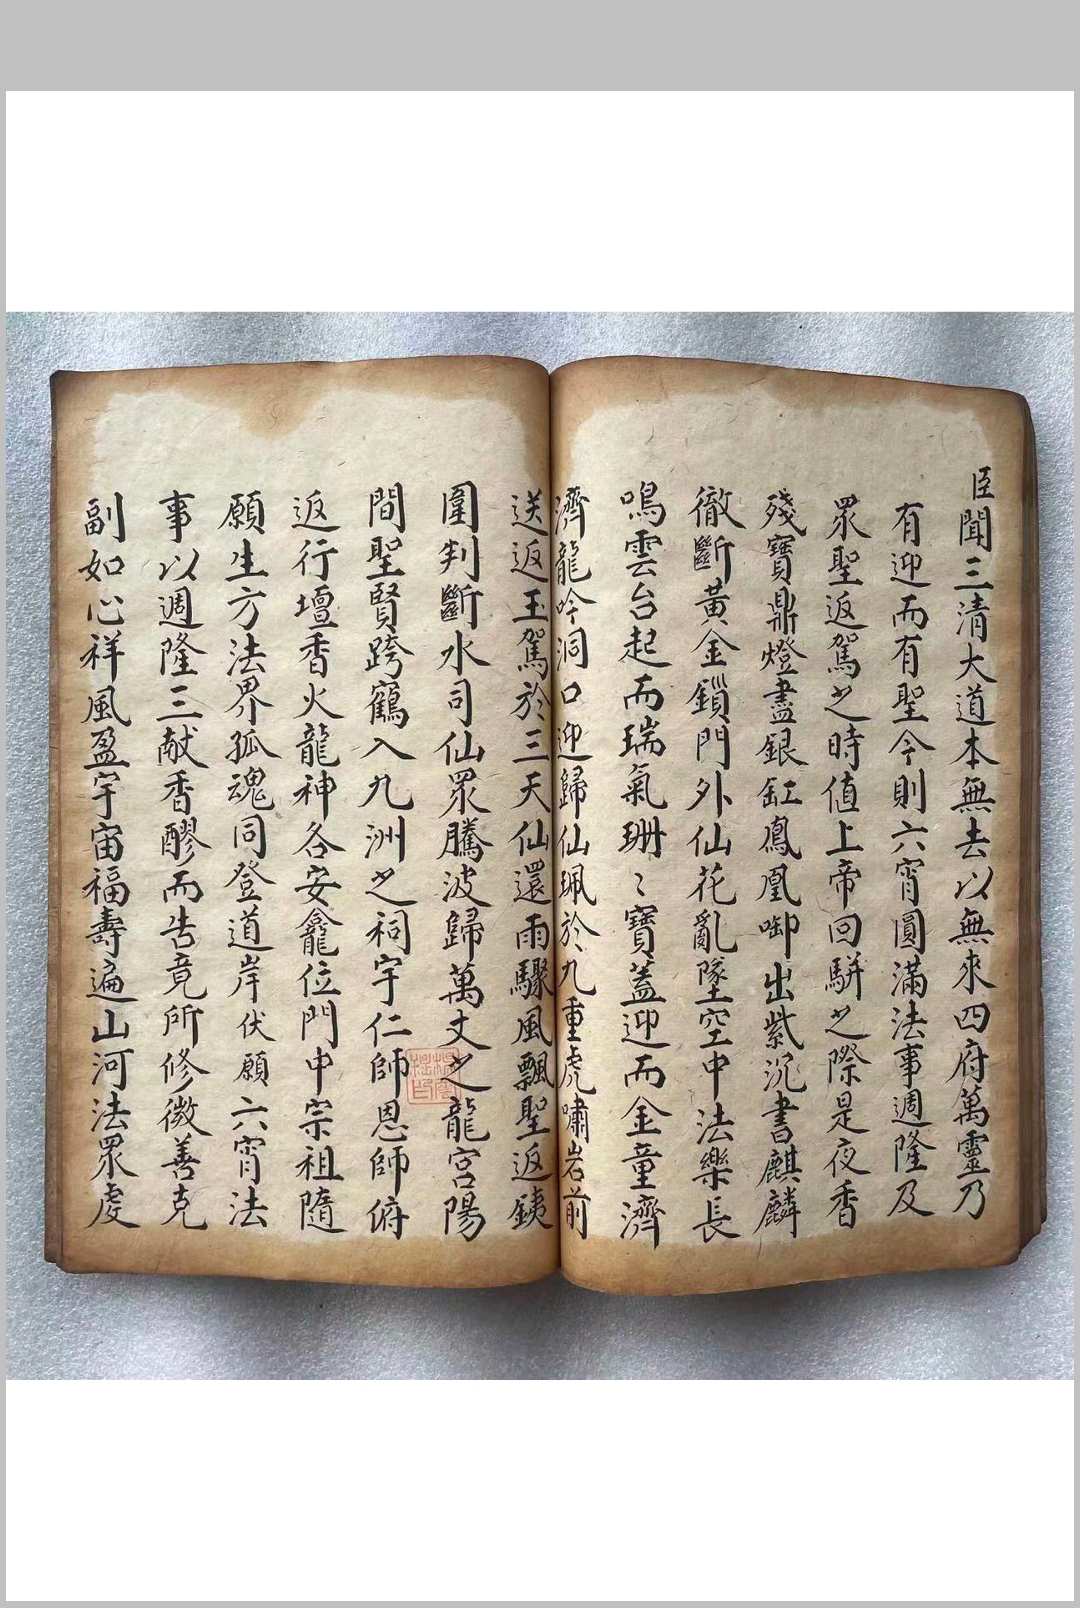 臣聞三清大道本無去以無來四府萬靈乃
有迎而有聖今則六宵圓滿法事週隆及
眾聖返駕之時值上帝回駢之際是夜香
殘寶鼎燈盡銀缸鳳凰啣出紫泥書麒麟
徹斷黃金鎖門外仙花亂墜空中法樂長
鳴雲台起而瑞氣珊〻寶蓋迎而金童濟
濟龍吟洞口迎歸仙珮於九重虎嘯岩前
送返玉駕於三天仙還雨驟風飄聖返鉄
圍判斷水司仙眾騰波歸萬丈之龍宮陽
間聖賢跨鶴入九洲之祠宇仁師恩師俯
返行壇香火龍神各安龕位門中宗祖隨
願生方法界孤魂同登道岸伏願六宵法
事以週隆三献香醪而告竟所修微善克
副如心祥風盈宇宙福壽遍山河法眾虔